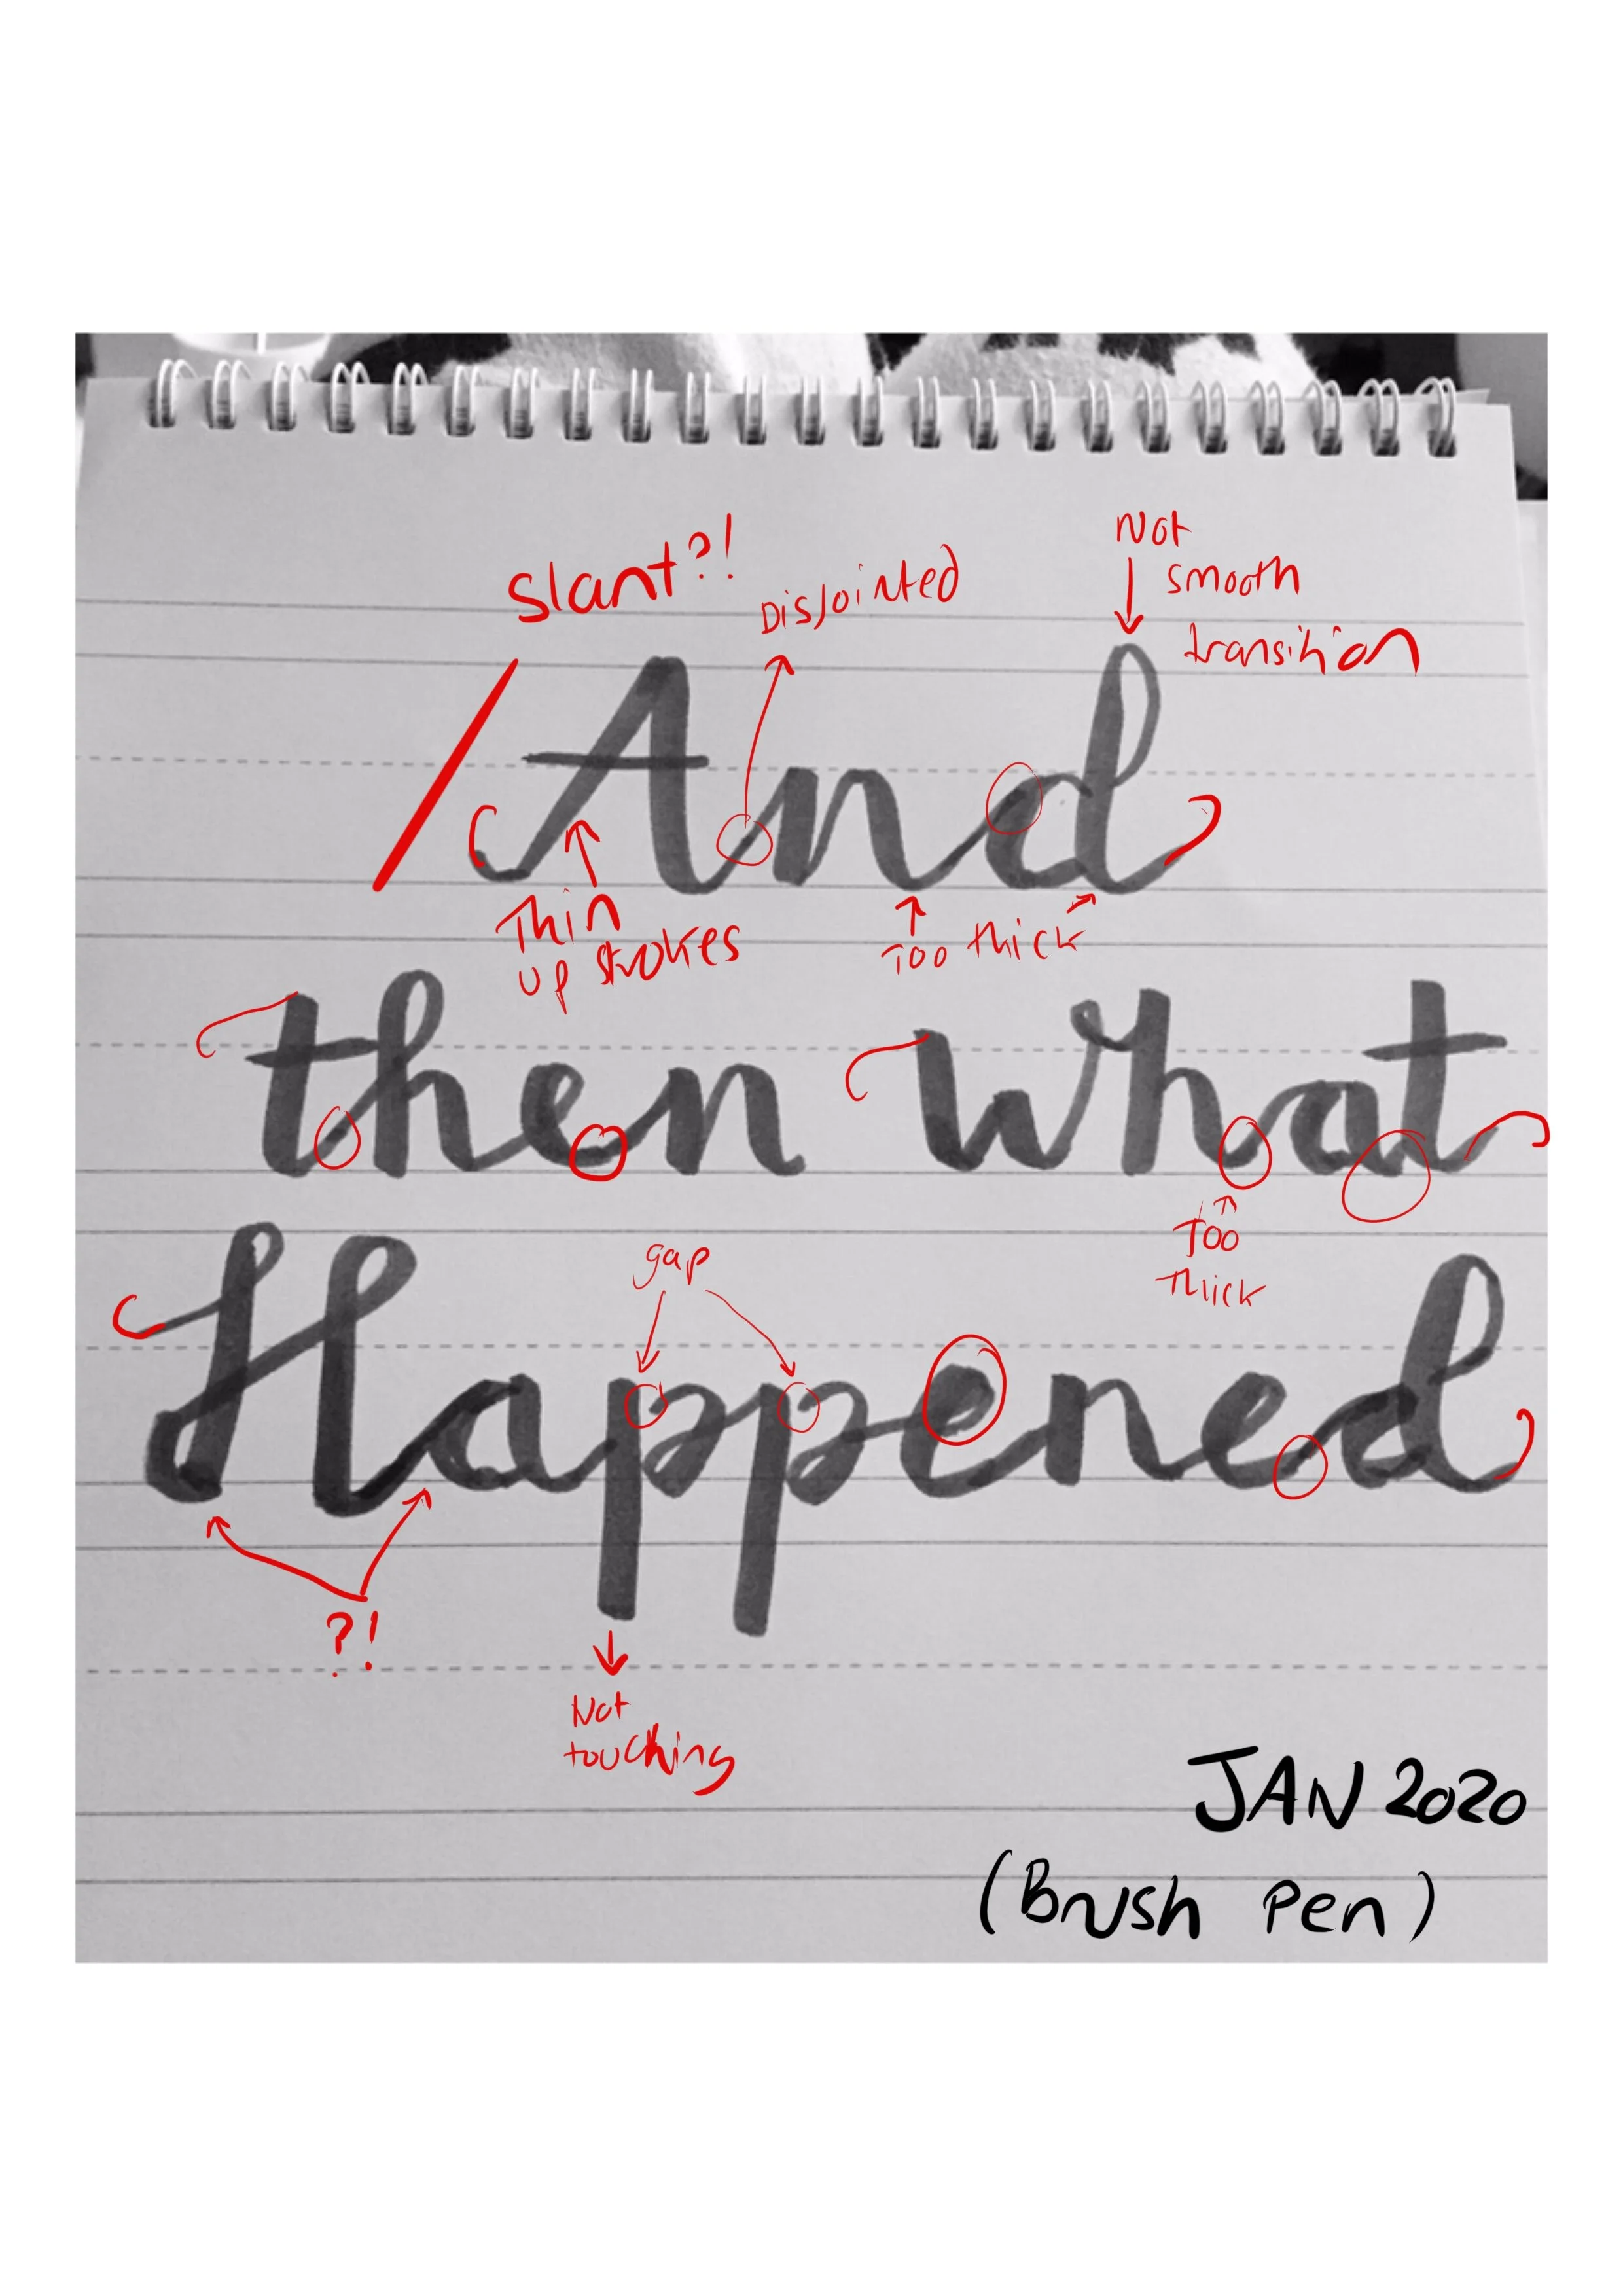 Slant?!
Disjointed
Not
smooth
transition
And
Thin
up strokes
Too thick
then what
Too
Thick
gap
Happened
?!
Not
touching
JAN 2020
(Brush Pen)